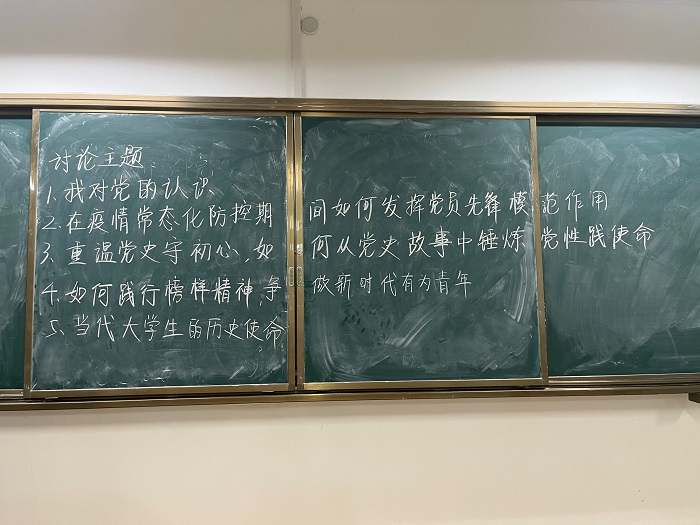 讨论主题:
1.我对党的认识
2.在疫情常态化防控期间如何发挥党员先锋模范作用
3.重温党史守初心,如何从党史故事中锤炼党性践使命
4.如何践行榜样精神,争做新时代有为青年
5.当代大学生的历史使命